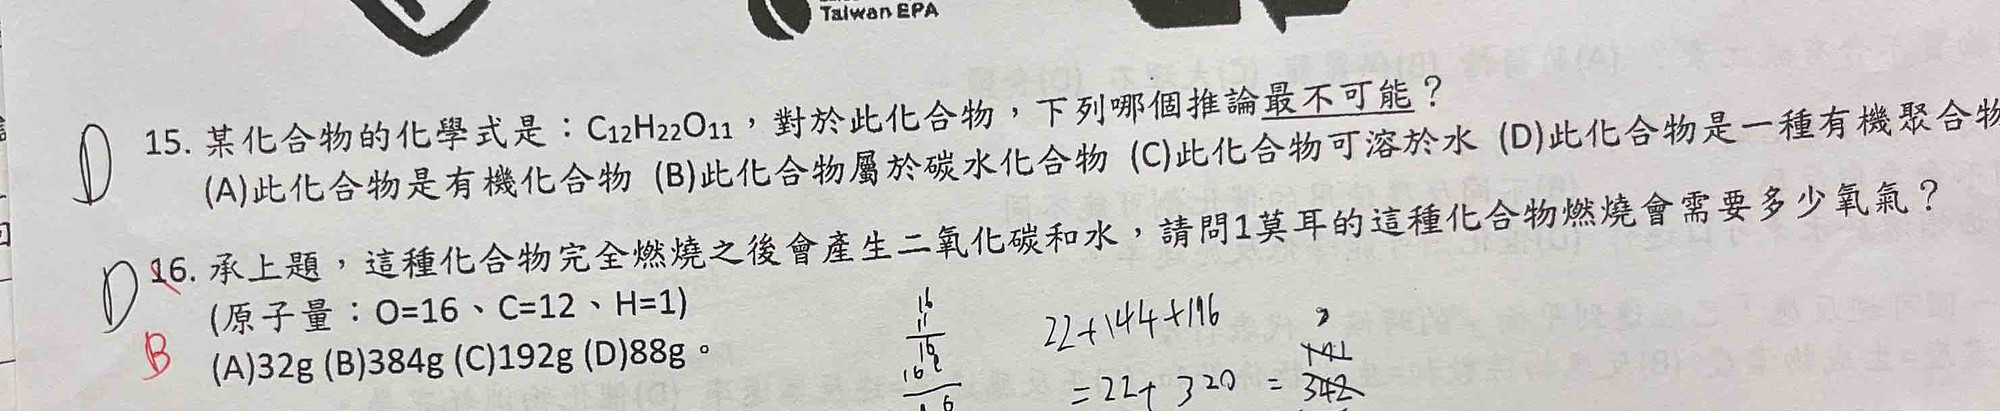 Taiwan EPA
D 15. 某化合物的化學式是：C12H22O11，對於此化合物，下列哪個推論最不可能？
(A)此化合物是有機化合物 (B)此化合物屬於碳水化合物 (C)此化合物可溶於水 (D)此化合物是一種有機聚合物
D 16. 承上題，這種化合物完全燃燒之後會產生二氧化碳和水，請問1莫耳的這種化合物燃燒會需要多少氧氣？
(原子量：O=16、C=12、H=1)
B (A)32g (B)384g (C)192g (D)88g。
16
11
16
16
22+144+196
=22+320=342